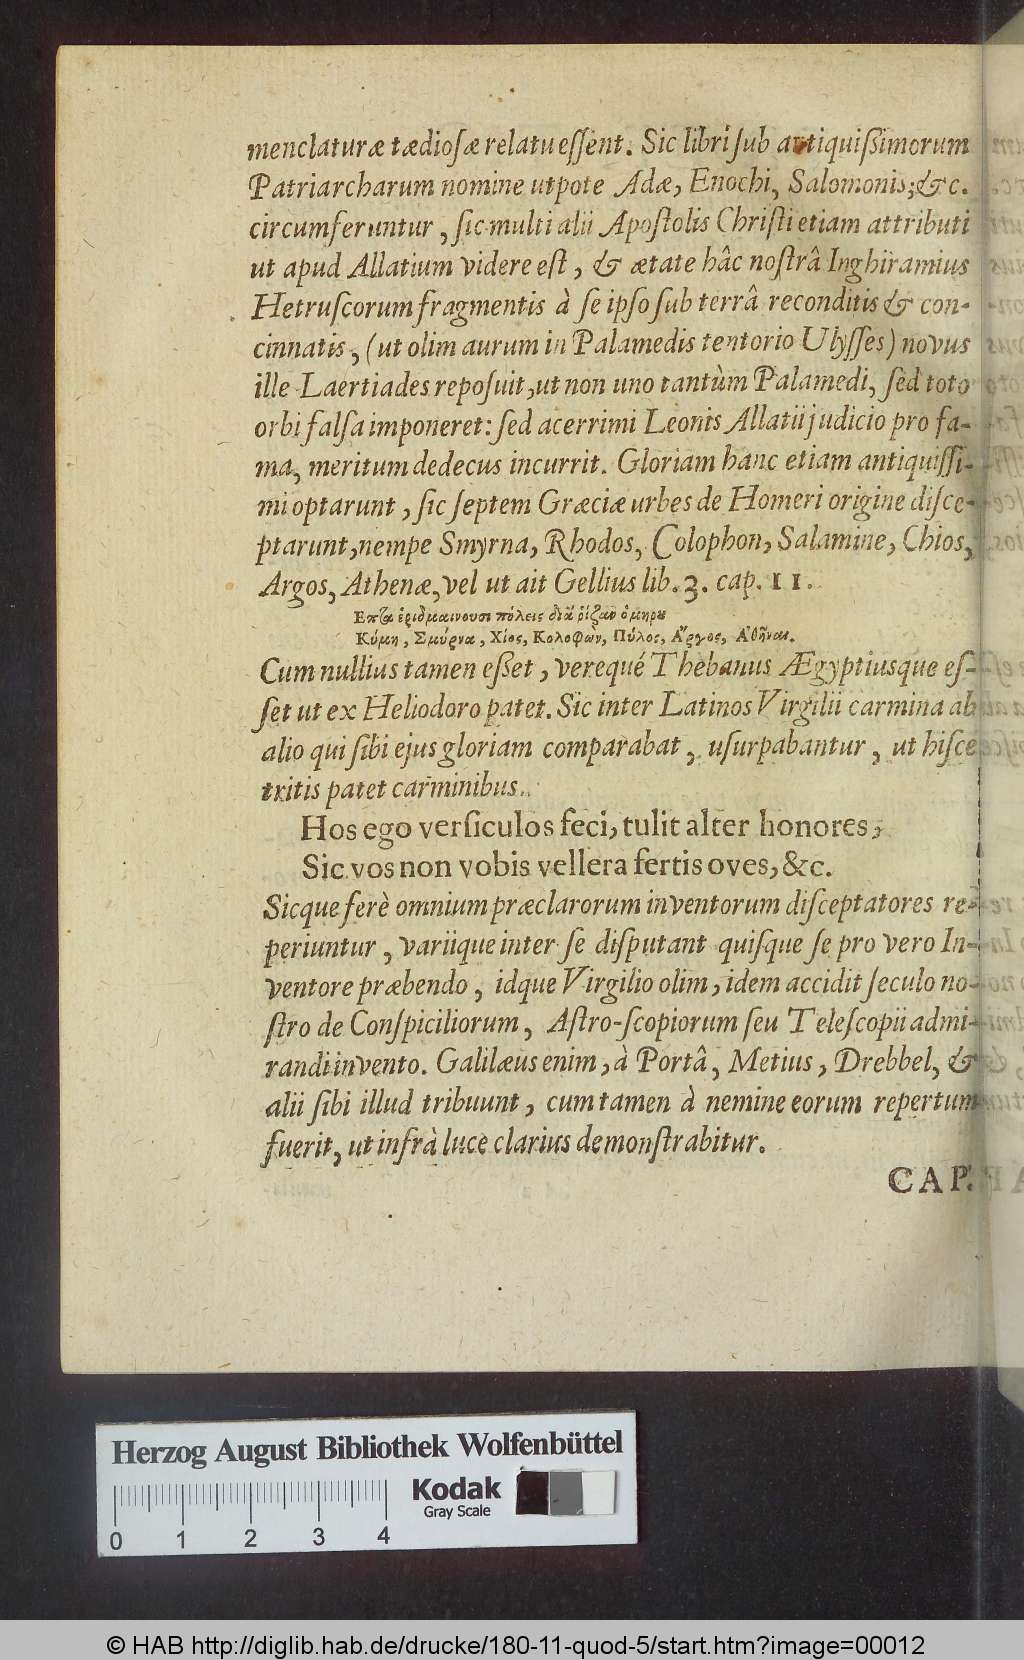 menclaturæ tædiosæ relatu essent. Sic libri sub antiquissimorum
Patriarcharum nomine utpote Adæ, Enochi, Salomonis, &c.
circumferuntur, sic multi alii Apostolis Christi etiam attributi
ut apud Allatium videre est, & ætate hâc nostrâ Inghiramius
Hetruscorum fragmentis à se ipso sub terrâ reconditis & con-
cinnatis, (ut olim aurum in Palamedis tentorio Ulysses) novus
ille Laertiades reposuit, ut non uno tantùm Palamedi, sed toto
orbi falsa imponeret: sed acerrimi Leonis Allatii judicio pro fa-
ma, meritum dedecus incurrit. Gloriam hanc etiam antiquissi-
mi optarunt, sic septem Græciæ urbes de Homeri origine disce-
ptarunt, nempe Smyrna, Rhodos, Colophon, Salamine, Chios,
Argos, Athenæ, vel ut ait Gellius lib. 3. cap. 11.
Επτα ἐριδμαινουσι πόλεις διὰ ῥίζαν ὁμηρου
Κύμη, Σμύρνα, Χίος, Κολοφὼν, Πύλος, Ἄργος, Ἀθῆναι.
Cum nullius tamen esset, verequé Thebanus Ægyptiusque es-
set ut ex Heliodoro patet. Sic inter Latinos Virgilii carmina ab
alio qui sibi ejus gloriam comparabat, usurpabantur, ut hisce
tritis patet carminibus.
Hos ego versiculos feci, tulit alter honores,
Sic vos non vobis vellera fertis oves, &c.
Sicque ferè omnium præclarorum inventorum disceptatores re-
periuntur, variique inter se disputant quisque se pro vero In-
ventore præbendo, idque Virgilio olim, idem accidit seculo no-
stro de Conspiciliorum, Astro-scopiorum seu Telescopii admi-
randi invento. Galilæus enim, à Portâ, Metius, Drebbel, &
alii sibi illud tribuunt, cum tamen à nemine eorum repertum
fuerit, ut infrà luce clarius demonstrabitur.
CAP.
Herzog August Bibliothek Wolfenbüttel
Kodak
Gray Scale
0 1 2 3 4
© HAB http://diglib.hab.de/drucke/180-11-quod-5/start.htm?image=00012